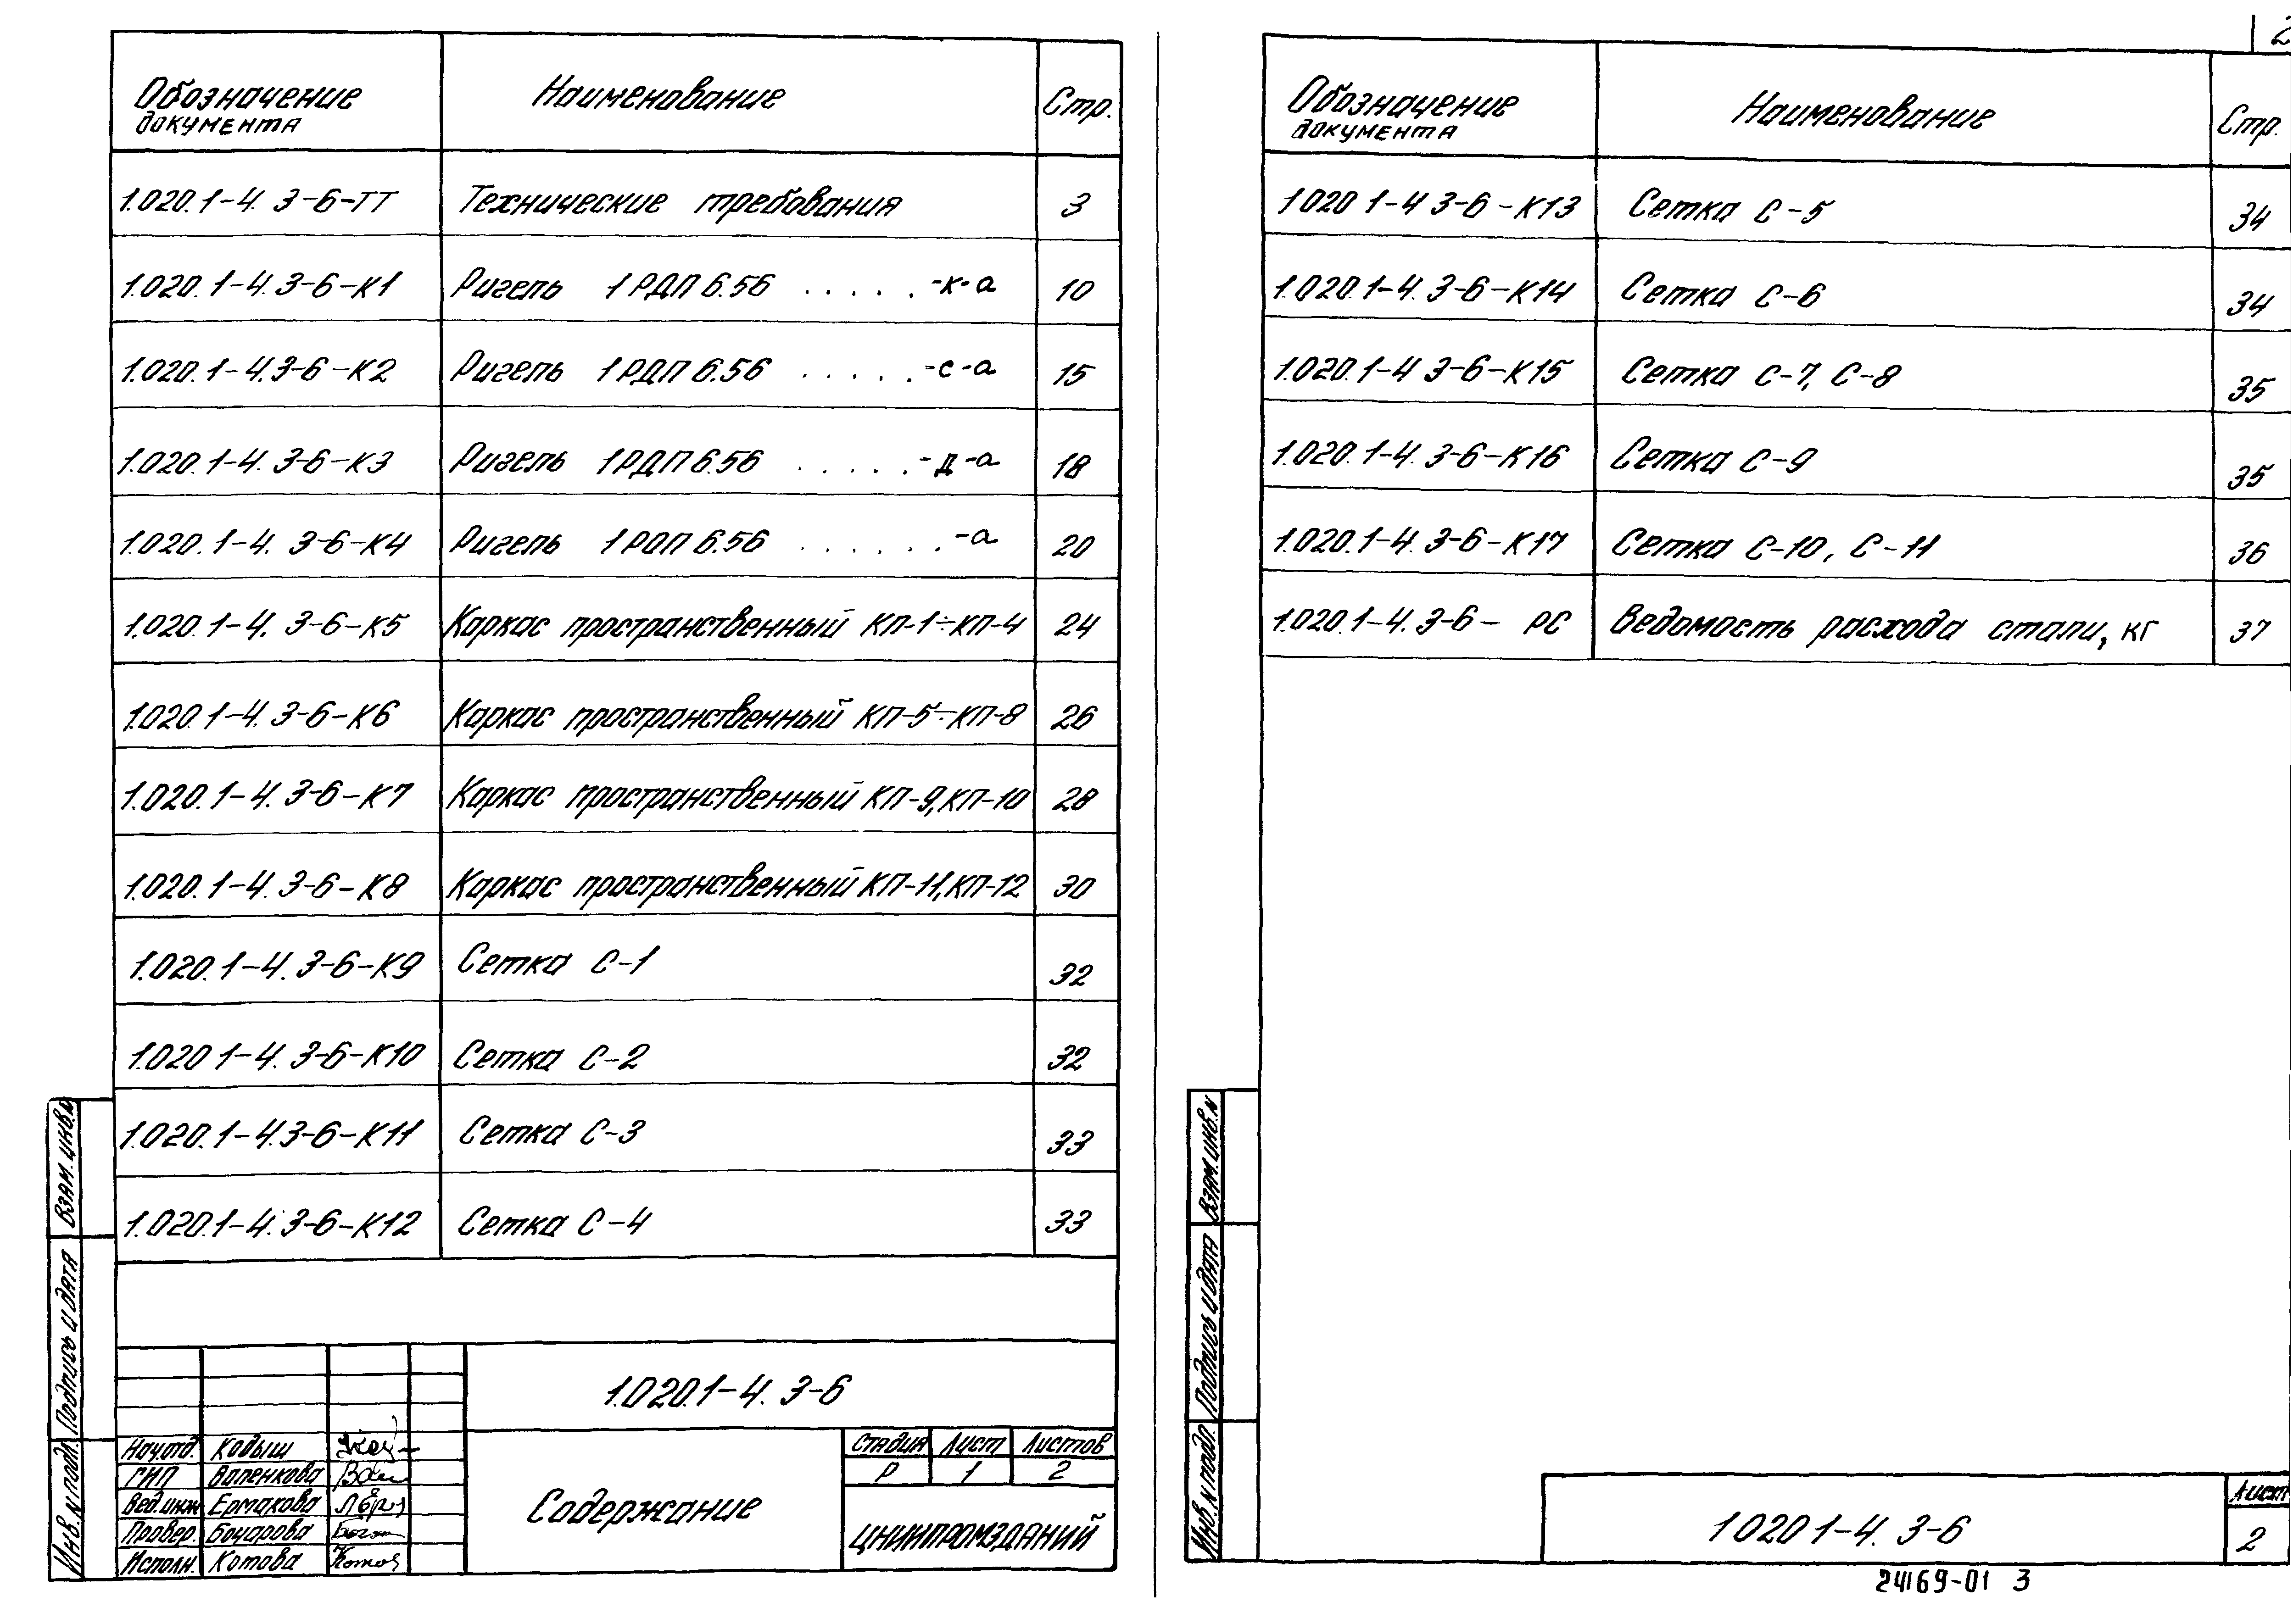 Обозначение документа Наименование Стр.
1.020.1-4. 3-6-ТТ Технические требования 3
1.020.1-4.3-6-К1 Ригель 1РДП6.56 . . . . . -к-а 10
1.020.1-4.3-6-К2 Ригель 1РДП6.56 . . . . . -с-а 15
1.020.1-4.3-6-К3 Ригель 1РДП6.56 . . . . . -д-а 18
1.020.1-4. 3-6-К4 Ригель 1РОП6.56 . . . . . . -а 20
1.020.1-4. 3-6-К5 Каркас пространственный КП-1÷КП-4 24
1.020.1-4.3-6-К6 Каркас пространственный КП-5÷КП-8 26
1.020.1-4.3-6-К7 Каркас пространственный КП-9,КП-10 28
1.020.1-4.3-6-К8 Каркас пространственный КП-11,КП-12 30
1.020.1-4.3-6-К9 Сетка С-1 32
1.020 1-4.3-6-К10 Сетка С-2 32
1.020.1-4.3-6-К11 Сетка С-3 33
1.020.1-4.3-6-К12 Сетка С-4 33
1.020.1-4. 3-6
Нач.отд. Кодыш
ГИП
Вед.инж Ермакова
Провер. Бочарова
Исполн. Котова
Содержание
Стадия Лист Листов
Р 1 2
ЦНИИПРОМЗДАНИЙ
Взам.инв.N
Подпись и дата
Инв.N подл.
2
Обозначение документа Наименование Стр.
1.020 1-4 3-6-К13 Сетка С-5 34
1.020.1-4.3-6-К14 Сетка С-6 34
1.020.1-4 3-6-К15 Сетка С-7, С-8 35
1.020.1-4.3-6-К16 Сетка С-9 35
1.020.1-4.3-6-К17 Сетка С-10, С-11 36
1.020.1-4.3-6- РС Ведомость расхода стали, кг 37
Взам.инв.N
Подпись и дата
Инв.N подл.
1 020 1-4. 3-6
Лист
2
24169-01 3